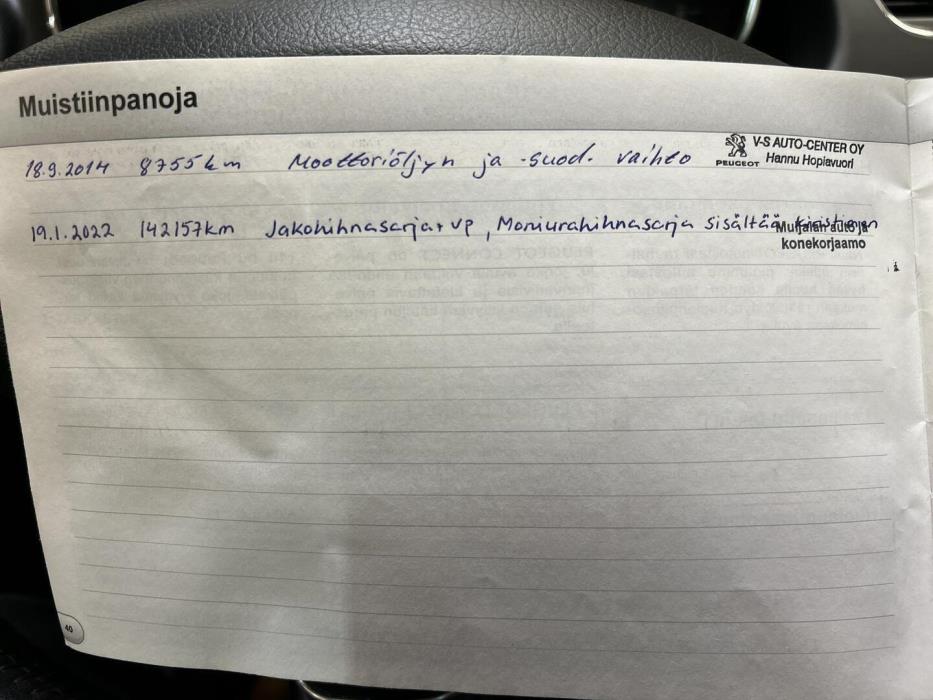 Muistiinpanoja
18.9.2014 8755km Moottoriöljyn ja -suod. vaihto
PEUGEOT
V-S AUTO-CENTER OY
Hannu Hopiavuori
19.1.2022 142157km Jakohihnasarja+vp, Moniurahihnasarja sisältää kiristimen
auto ja
konekorjaamo
40